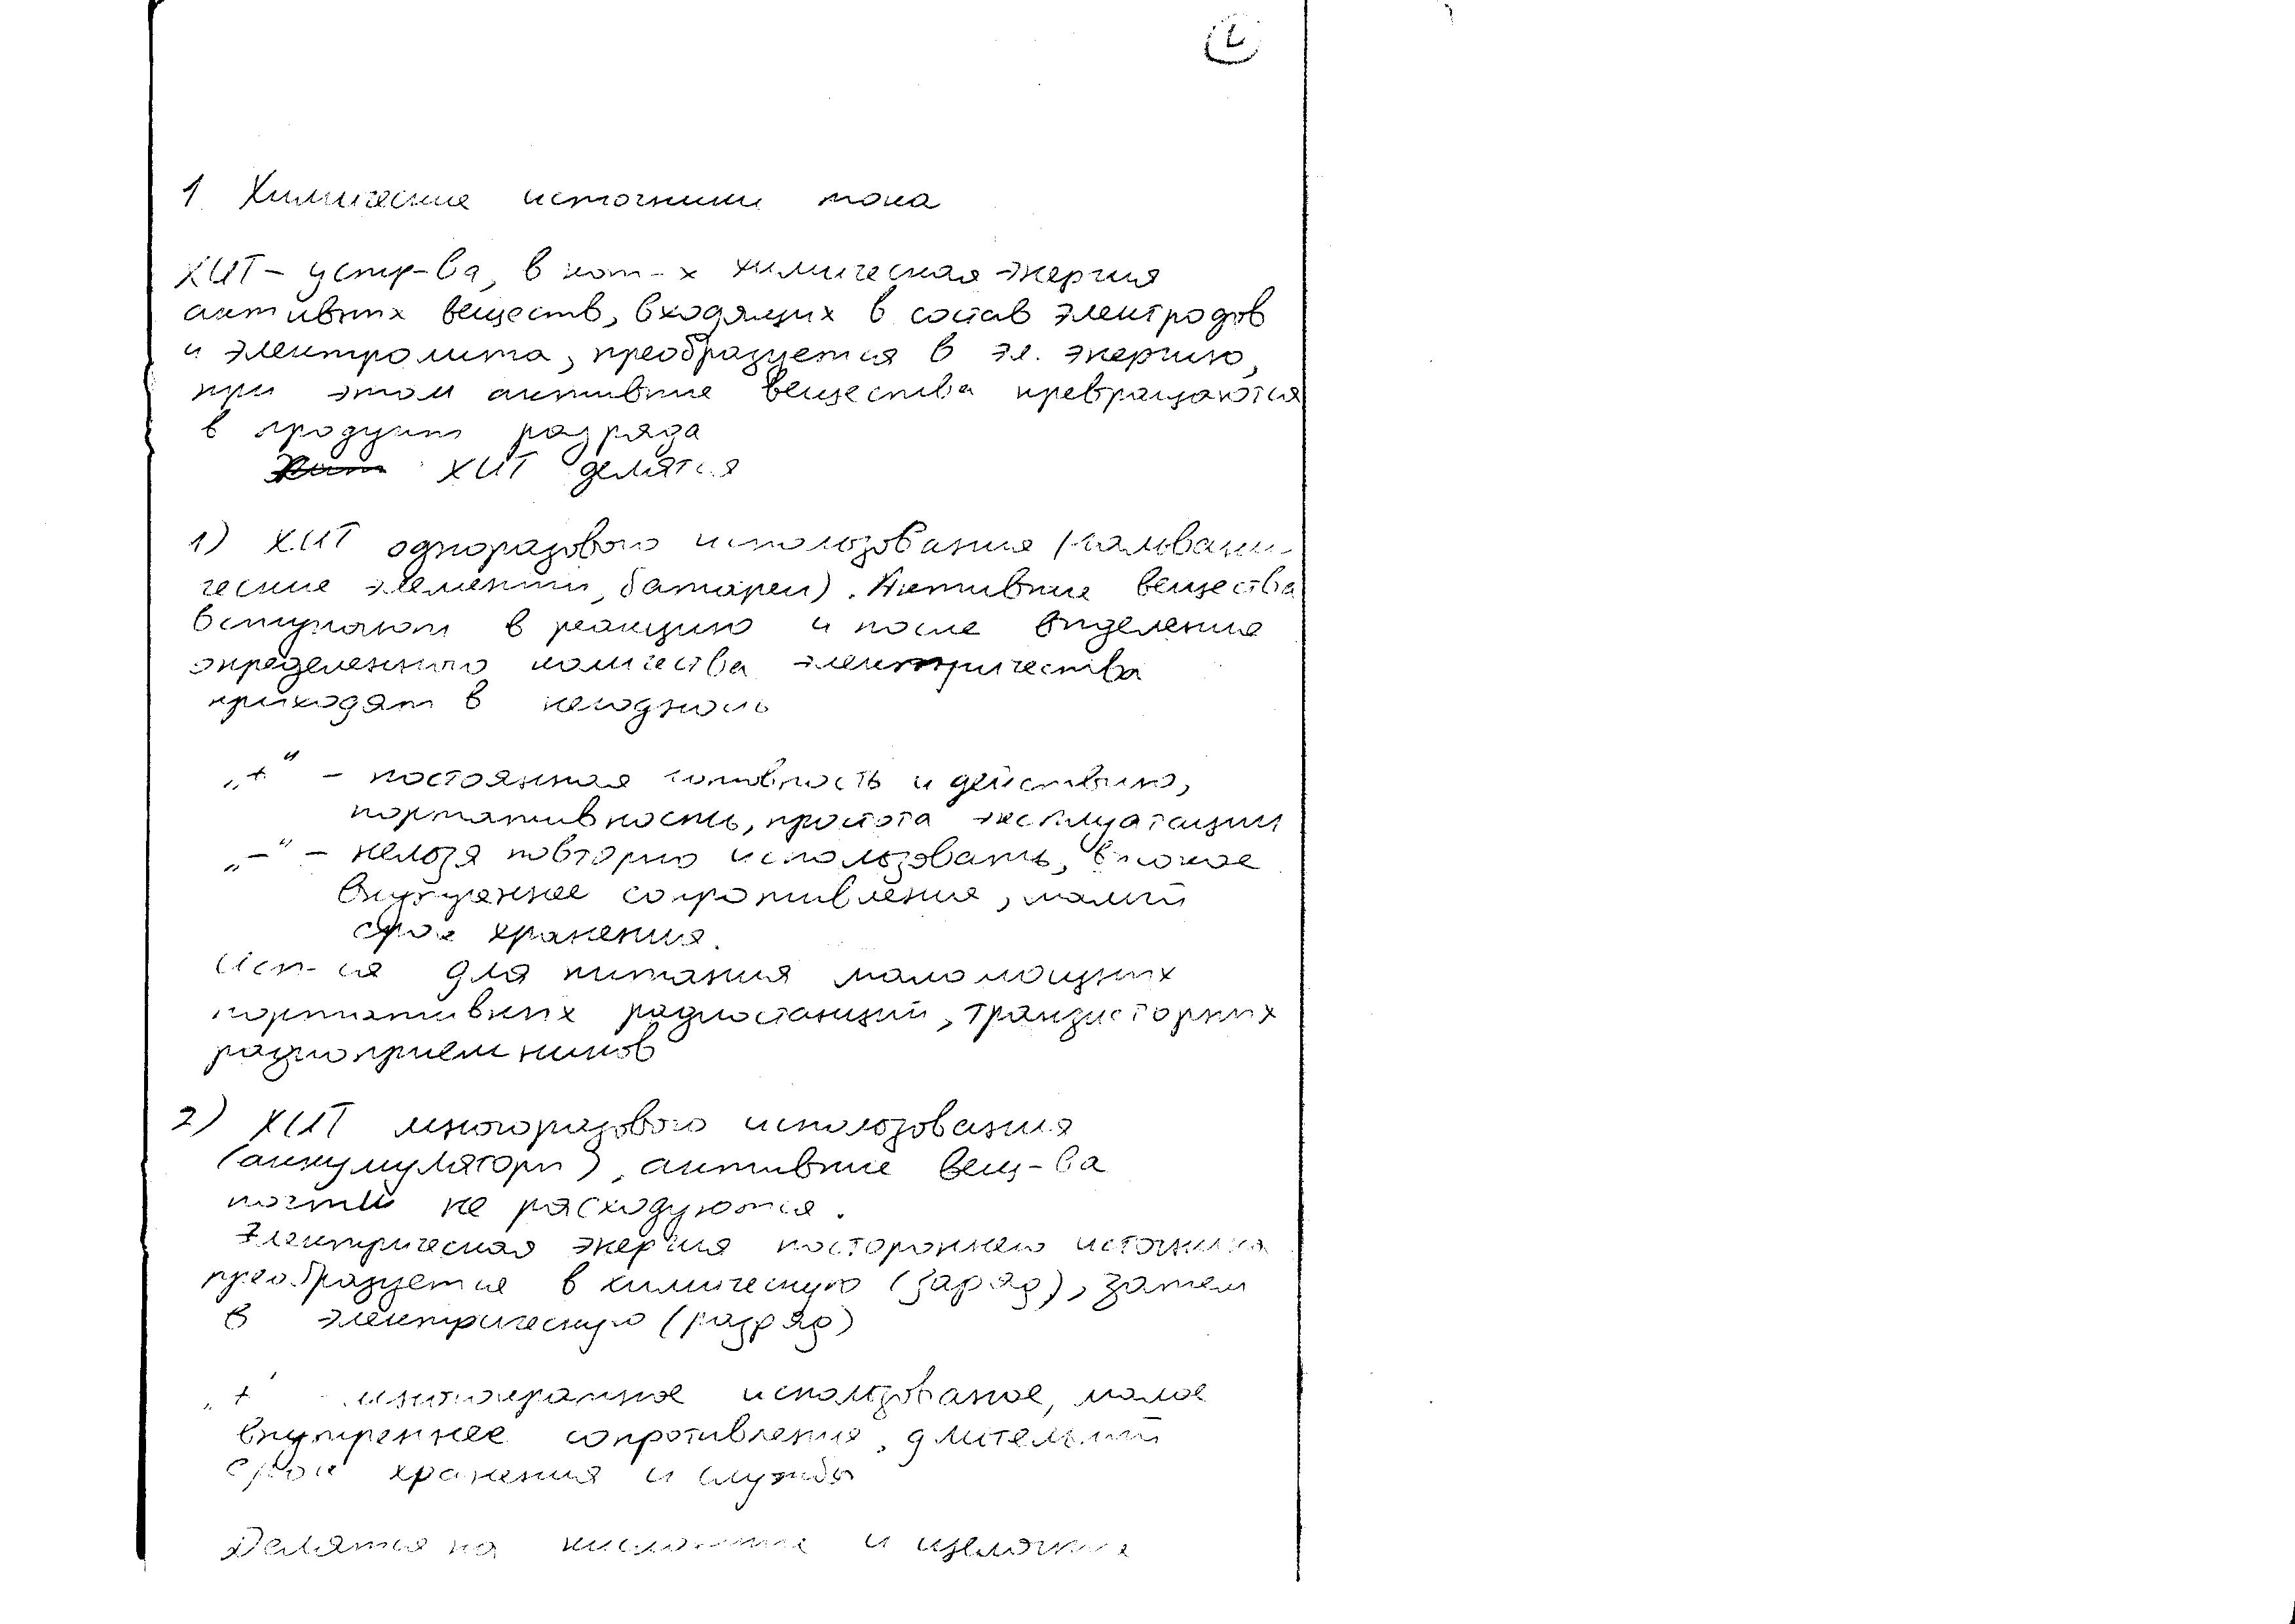 1 Химические источники тока
ХИТ - устр-ва, в кот-х химическая энергия
активных веществ, входящих в состав электродов
и электролита, преобразуется в эл. энергию,
при этом активные вещества превращаются
в продукты разряда
ХИТ делятся
1) ХИТ одноразового использования (гальвани-
ческие элементы, батареи). Активные вещества
вступают в реакцию и после выделения
определенного количества электричества
приходят в негодность
„+“ - постоянная готовность к действию,
портативность, простота эксплуатации
„-“ - нельзя повторно использовать, высокое
внутреннее сопротивление, малый
срок хранения.
Исп-ся для питания маломощных
портативных радиостанций, транзисторных
радиоприемников
2) ХИТ многоразового использования
(аккумуляторы), активные вещ-ва
почти не расходуются.
Электрическая энергия постороннего источника
преобразуется в химическую (заряд), затем
в электрическую (разряд)
„+“ - многократное использование, малое
внутреннее сопротивление, длительный
срок хранения и службы
Делятся на кислотные и щелочные